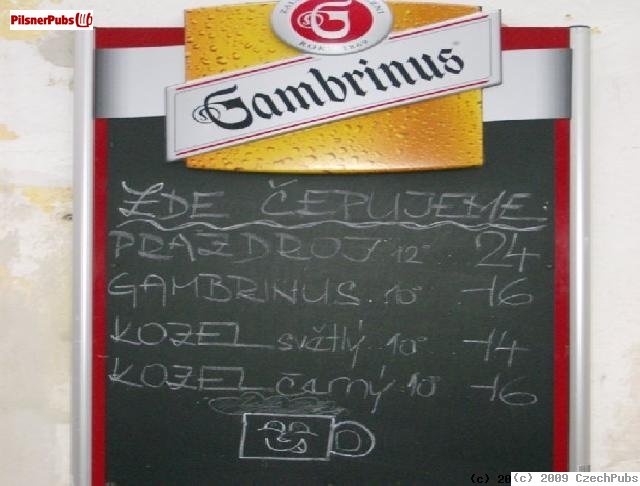 PilsnerPubs
ROKU 1869
Gambrinus
ZDE ČEPUJEME
PRAZDROJ 12° 24
GAMBRINUS 10° 16
KOZEL světlý 10° 14
KOZEL čarný 10° 16
(c) 20
(c) 2009 CzechPubs